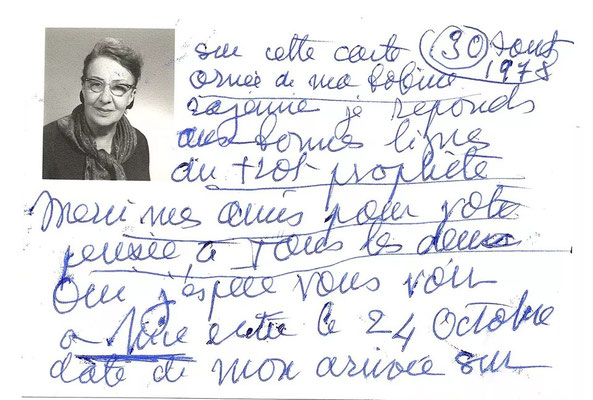 sur cette carte (30) Aout
1978
ornée de ma bobine
je reponds
aux bonnes lignes
du prophète
Merci mes amis pour votre
pensée à tous les deux
Oui j'espère vous voir
a entre le 24 Octobre
date de mon arrivée sur